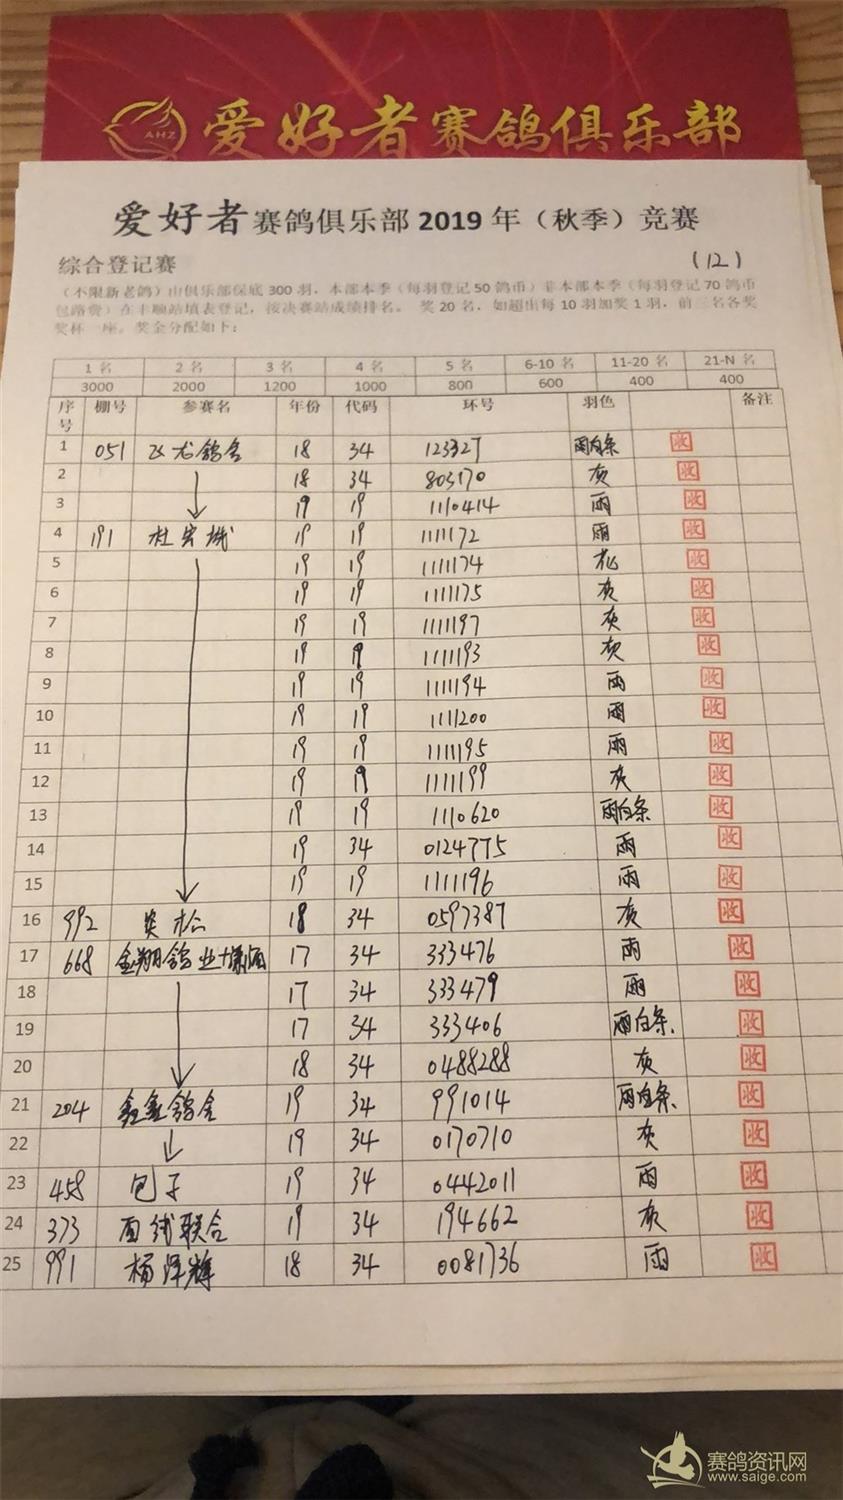 AHZ 爱好者赛鸽俱乐部
爱好者赛鸽俱乐部 2019 年（秋季）竞赛
综合登记赛 (12)
（不限新老鸽）由俱乐部保底 300 羽，本部本季（每羽登记 50 鸽币）非本部本季（每羽登记 70 鸽币
包路费）在丰顺站填表登记，按决赛站成绩排名。 奖 20 名，如超出每 10 羽加奖 1 羽，前三名各奖
奖杯一座。奖金分配如下：
1 名 2 名 3 名 4 名 5 名 6-10 名 11-20 名 21-N 名
3000 2000 1200 1000 800 600 400 400
序号 棚号 参赛名 年份 代码 环号 羽色 备注
1 051 飞龙鸽舍 18 34 123327 雨白条 收
2 18 34 803170 灰 收
3 19 19 1110414 雨 收
4 191 杜宏城 19 19 1111172 雨 收
5 19 19 1111174 花 收
6 19 19 1111175 灰 收
7 19 19 1111197 灰 收
8 19 19 1111193 灰 收
9 19 19 1111194 雨 收
10 19 19 1111200 雨 收
11 19 19 1111195 雨 收
12 19 19 1111199 灰 收
13 19 19 1110620 雨白条 收
14 19 34 0124775 雨 收
15 19 19 1111196 雨 收
16 992 松 18 34 0597387 灰 收
17 668 金翔鸽业+ 17 34 333476 雨 收
18 17 34 333479 雨 收
19 17 34 333406 雨白条 收
20 18 34 0488288 灰 收
21 204 鑫鑫鸽舍 19 34 991014 雨白条 收
22 19 34 0170710 灰 收
23 458 包子 19 34 0442011 雨 收
24 373 面线联合 19 34 194662 灰 收
25 991 杨泽辉 18 34 0081736 雨 收
赛鸽资讯网
www.saige.com